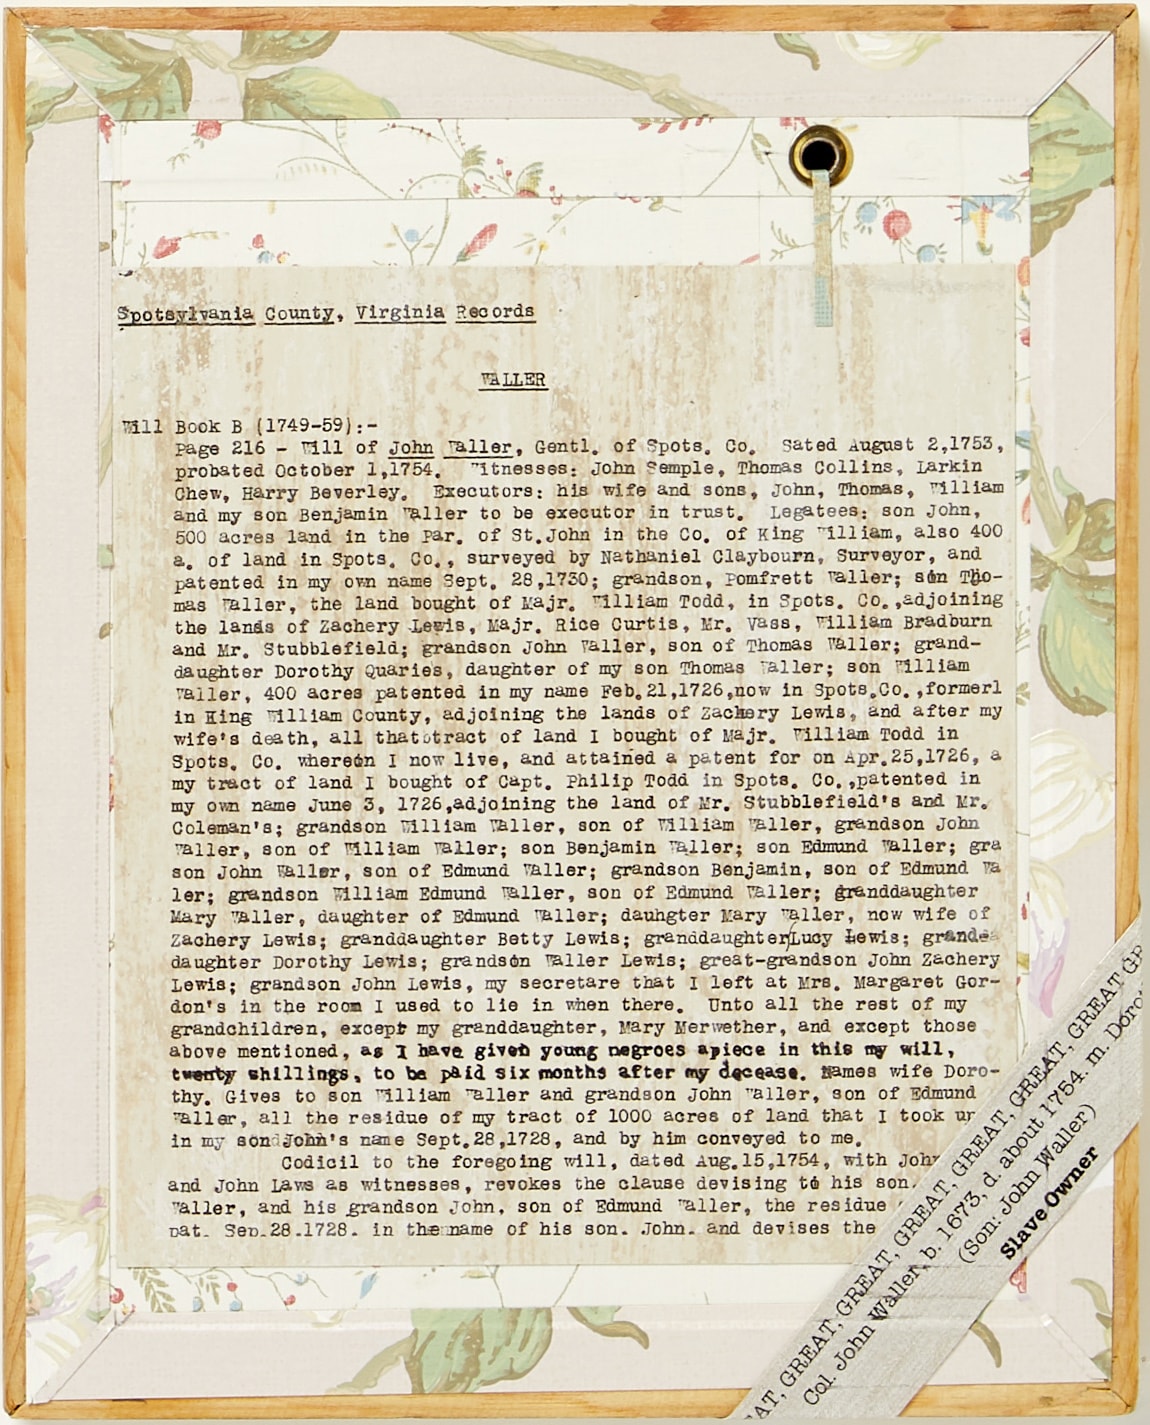 Spotsylvania County, Virginia Records
WALLER
Will Book B (1749-59):-
Page 216 - Will of John Waller, Gentl. of Spots. Co. Sated August 2,1753,
probated October 1,1754. Witnesses: John Semple, Thomas Collins, Larkin
Chew, Harry Beverley. Executors: his wife and sons, John, Thomas, William
and my son Benjamin Waller to be executor in trust. Legatees: son John,
500 acres land in the Par. of St.John in the Co. of King William, also 400
a. of land in Spots. Co., surveyed by Nathaniel Claybourn, Surveyor, and
patented in my own name Sept. 28,1730; grandson, Pomfrett Waller; son Tho-
mas Waller, the land bought of Majr. William Todd, in Spots. Co.,adjoining
the lands of Zachery Lewis, Majr. Rice Curtis, Mr. Vass, William Bradburn
and Mr. Stubblefield; grandson John Waller, son of Thomas Waller; grand-
daughter Dorothy Quaries, daughter of my son Thomas Waller; son William
Waller, 400 acres patented in my name Feb.21,1726,now in Spots.Co.,formerl
in King William County, adjoining the lands of Zachery Lewis, and after my
wife's death, all that tract of land I bought of Majr. William Todd in
Spots. Co. whereon I now live, and attained a patent for on Apr.25,1726, a
my tract of land I bought of Capt. Philip Todd in Spots. Co.,patented in
my own name June 3, 1726,adjoining the land of Mr. Stubblefield's and Mr.
Coleman's; grandson William Waller, son of William Waller, grandson John
Waller, son of William Waller; son Benjamin Waller; son Edmund Waller; gra
son John Waller, son of Edmund Waller; grandson Benjamin, son of Edmund Wa
ler; grandson William Edmund Waller, son of Edmund Waller; granddaughter
Mary Waller, daughter of Edmund Waller; dauhgter Mary Waller, now wife of
Zachery Lewis; granddaughter Betty Lewis; granddaughter Lucy Lewis; grand-
daughter Dorothy Lewis; grandson Waller Lewis; great-grandson John Zachery
Lewis; grandson John Lewis, my secretare that I left at Mrs. Margaret Gor-
don's in the room I used to lie in when there. Unto all the rest of my
grandchildren, except my granddaughter, Mary Merwether, and except those
above mentioned, as I have given young negroes apiece in this my will,
twenty shillings, to be paid six months after my decease. Names wife Doro-
thy. Gives to son William Waller and grandson John Waller, son of Edmund
Waller, all the residue of my tract of 1000 acres of land that I took up
in my son John's name Sept.28,1728, and by him conveyed to me.
Codicil to the foregoing will, dated Aug.15,1754, with John
and John Laws as witnesses, revokes the clause devising to his son
Waller, and his grandson John, son of Edmund Waller, the residue
pat. Sep.28.1728. in the name of his son. John. and devises the
EAT, GREAT, GREAT, GREAT, GREAT, GREAT, GREAT, GREAT GR
Col. John Waller, b. 1673, d. about 1754. m. Doro
(Son: John Waller)
Slave Owner